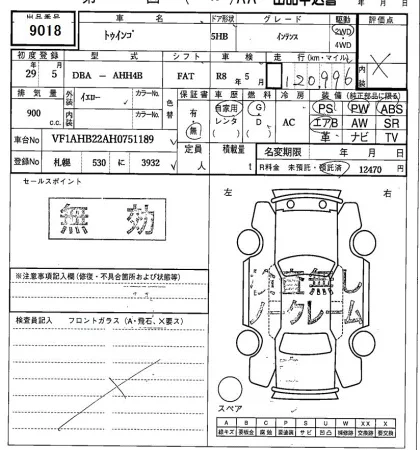 第 回 出品申込書 年 月 日
出品番号 車名 ドア形状 グレード 駆動 評価点
9018 トゥインゴ 5HB インテンス 2WD 4WD
初度登録 型式 シフト 車検 走行(km・マイル) 内装
29年 5月 DBA - AHH4B FAT R8年 5月 120,996
排気量 外装 カラーNo. 色替 保証書 車歴 燃料 冷房 装備(純正部品に限る)
900 c.c. イエロー 有 自家用 G AC PS PW ABS
内装 カラーNo. 無 レンタ D エアB AW SR
革 ナビ TV
車台No VF1AHB22AH0751189 定員 人 積載量 t 名変期限 年 月 日
登録No 札幌 530 に 3932 R料金 未預託・預託済 12470円
セールスポイント 左 右
無 効
※注意事項記入欄(修復・不具合箇所および状態等)
ノークレーム
検査員記入 フロントガラス(A・飛石、X要ス)
スペア
A B C P S U W X XX
線キズ 要板金 腐蝕 要塗装 サビ 凹凸 補修跡 交換跡 要交換